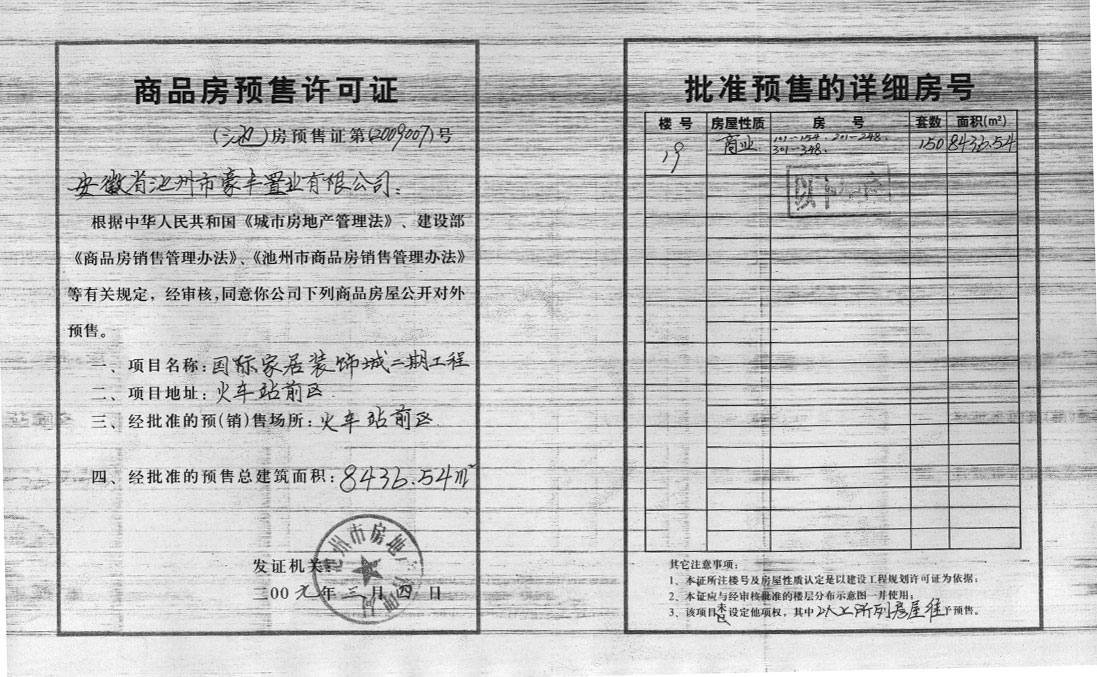 商品房预售许可证
(池)房预售证第(2009007)号
安徽省池州市豪丰置业有限公司:
根据中华人民共和国《城市房地产管理法》、建设部
《商品房销售管理办法》、《池州市商品房销售管理办法》
等有关规定,经审核,同意你公司下列商品房屋公开对外
预售。
一、项目名称:国际家居装饰城二期工程
二、项目地址:火车站前区
三、经批准的预(销)售场所:火车站前区
四、经批准的预售总建筑面积:8436.54m²
池州市房地产
发证机关:
二00九年三月四日
批准预售的详细房号
楼号 房屋性质 房号 套数 面积(m²)
19 商业 101-154、201-248、 150 8436.54
301-348、
以下
其它注意事项:
1、本证所注楼号及房屋性质认定是以建设工程规划许可证为依据;
2、本证应与经审核批准的楼层分布示意图一并使用;
3、该项目未设定他项权,其中以上所列房屋准予预售。